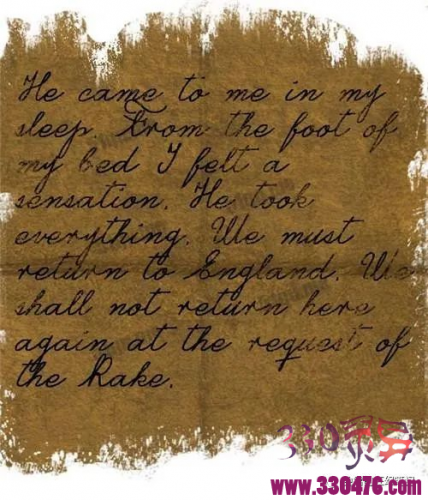 He came to me in my
sleep. From the foot of
my bed I felt a
sensation. He took
everything. We must
return to England. We
shall not return here
again at the request of
the Rake.
330灵异
www.330476.com